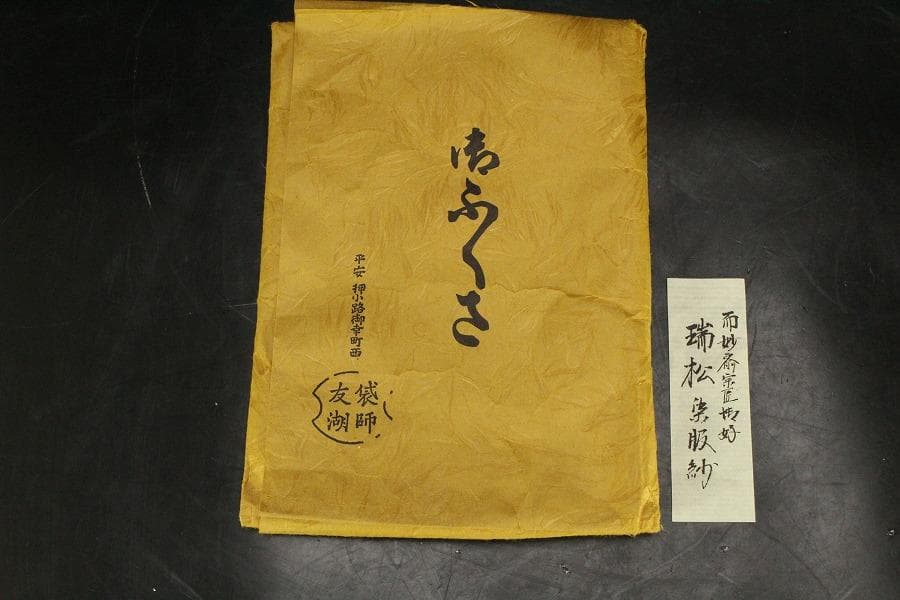 御ふくさ
平安 押小路御幸町西
袋師
友湖
而妙斎宗匠御好
瑞松 染服紗